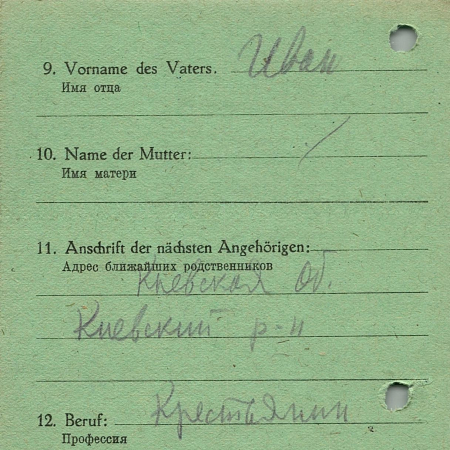 9. Vorname des Vaters. Иван
Имя отца
10. Name der Mutter: /
Имя матери
11. Anschrift der nächsten Angehörigen:
Адрес ближайших родственников
Киевская об.
Киевский р-н
12. Beruf: Крестьянин
Профессия